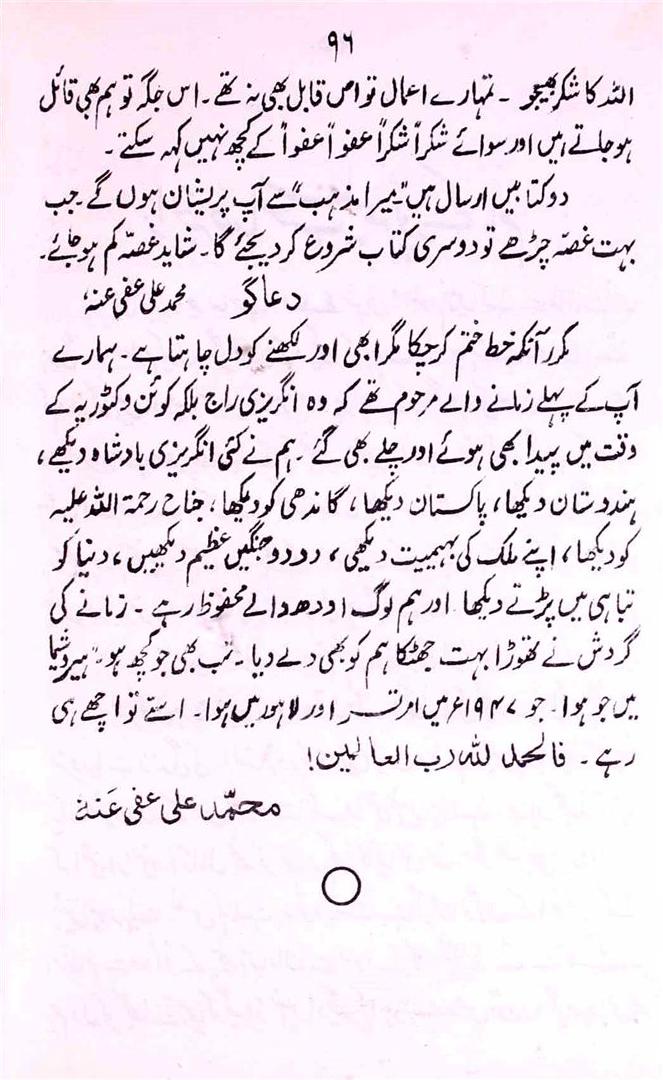 ۹۶
اللہ کا شکر بھیجو ۔ تمہارے اعمال تو اس قابل بھی نہ تھے ۔ اس جگہ تو ہم بھی قائل
ہو جاتے ہیں اور سوائے شکراً شکراً عفواً عفواً کے کچھ نہیں کہہ سکتے ۔
دو کتابیں ارسال ہیں "میرا مذہب" سے آپ پریشان ہوں گے جب
بہت غصّہ چڑھے تو دوسری کتاب شروع کر دیجئے گا ۔ شاید غصّہ کم ہو جائے ۔
دعاگو محمد علی عفی عنہ
مکرر آنکہ خط ختم کر چکا مگر ابھی اور لکھنے کو دل چاہتا ہے ۔ ہمارے
آپ کے پہلے زمانے والے مرحوم تھے کہ وہ انگریزی راج بلکہ کوئن وکٹوریہ کے
وقت میں پیدا بھی ہوئے اور چلے بھی گئے ۔ ہم نے کئی انگریزی بادشاہ دیکھے ،
ہندوستان دیکھا ، پاکستان دیکھا ، گاندھی کو دیکھا ، جناح رحمۃ اللہ علیہ
کو دیکھا ، اپنے ملک کی بہیمیت دیکھی ، دو دو جنگیں عظیم دیکھیں ، دنیا کو
تباہی میں پڑتے دیکھا اور ہم لوگ اودھ والے محفوظ رہے ۔ زمانے کی
گردش نے تھوڑا بہت جھٹکا ہم کو بھی دے دیا ۔ تب بھی جو کچھ ہو ۔ ہیروشیما
میں جو ہوا ۔ جو ۱۹۴۷ء میں امرتسر اور لاہور میں ہوا ۔ اس سے تو اچھے ہی
رہے ۔ فالحمد للہ رب العالمین !
محمّد علی عفی عَنہٗ